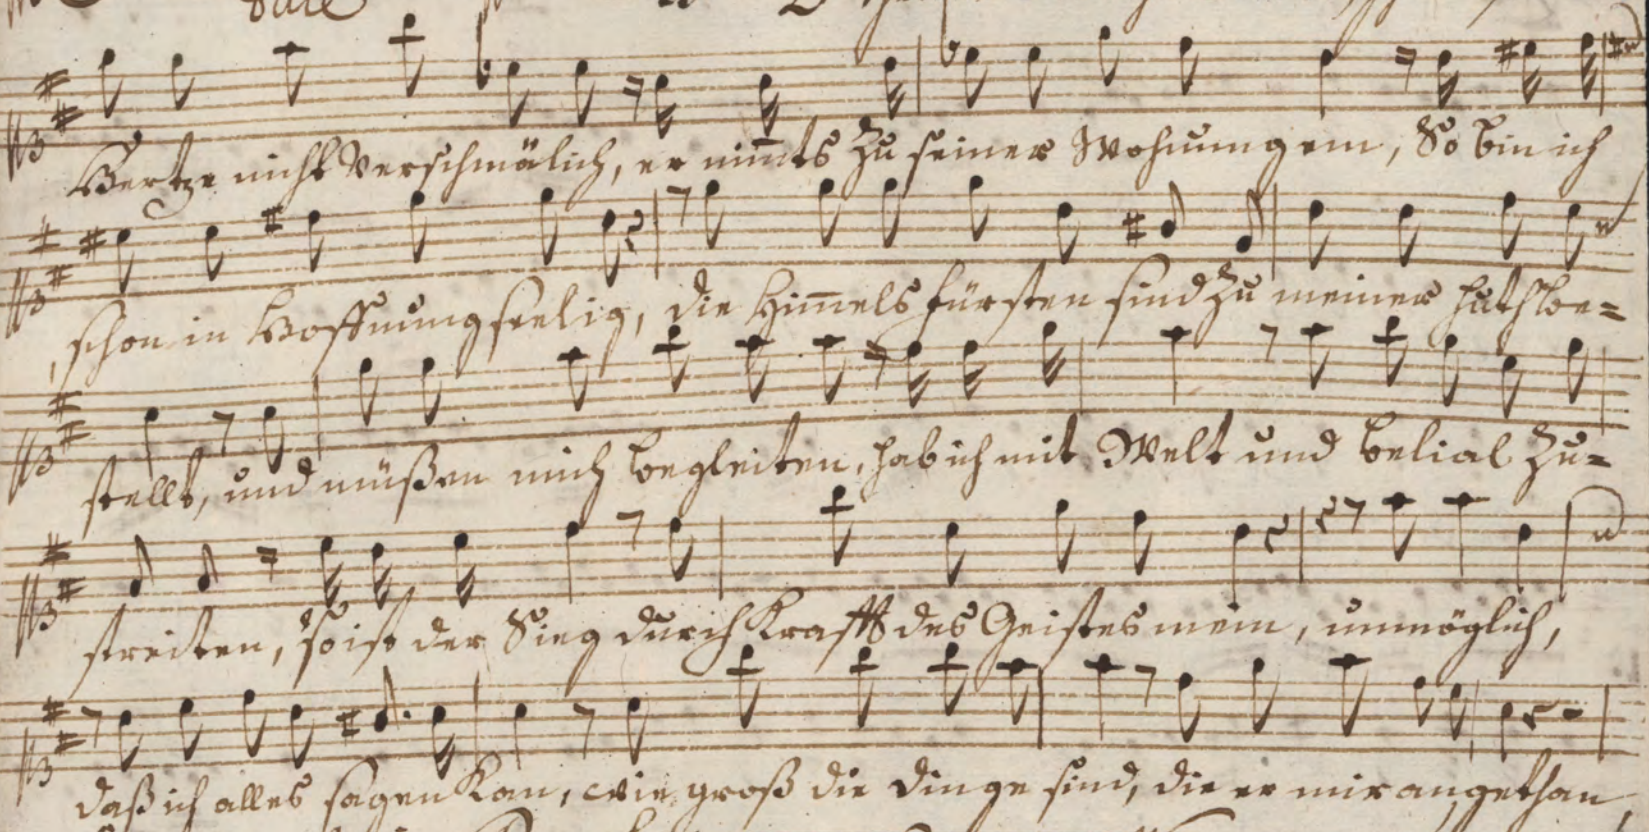 Hertze nicht Verschmälich, er nim̅ts zu seiner Wohnung ein, So bin ich
schon in Hoffnung seelig, die Him̅els fürsten sind zu meiner huth be=
stellt, und müßen mich begleiten, hab ich mit Welt und Belial zu=
streiten, so ist der Sieg durch Krafft des Geistes mein, unmöglich,
daß ich alles sagen kan, wie groß die Dinge sind, die er mir angethan,